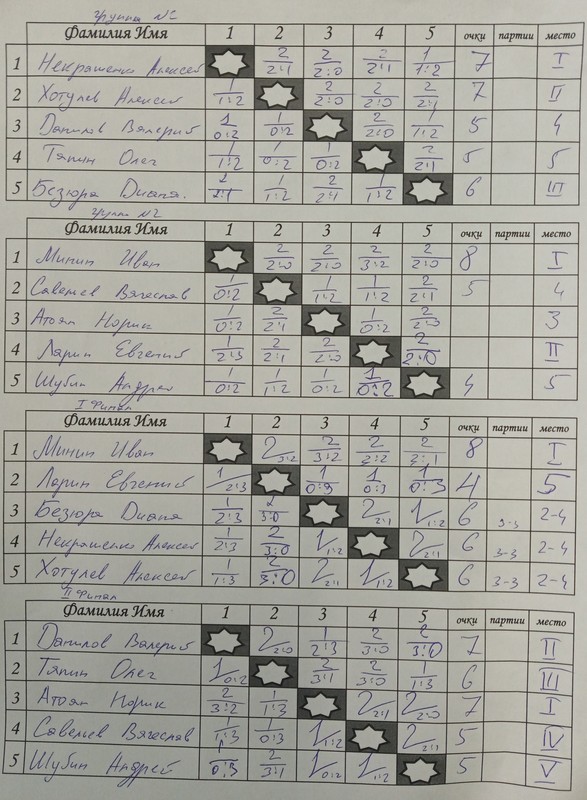 группа №2
Фамилия Имя 1 2 3 4 5 очки партии место
1 Некрашенко Алексей 2 2:1 2 2:0 2 2:1 1 1:2 7 I
2 Хотулев Алексей 1 1:2 2 2:0 2 2:0 2 2:1 7 II
3 Данилов Валерий 1 0:2 1 0:2 2 2:0 1 1:2 5 4
4 Тяпин Олег 1 1:2 1 0:2 1 0:2 2 2:1 5 5
5 Безюра Диана. 2 2:1 1 1:2 2 2:1 1 1:2 6 III
группа №2
Фамилия Имя 1 2 3 4 5 очки партии место
1 Минин Иван 2 2:0 2 2:0 2 3:2 2 2:0 8 I
2 Савельев Вячеслав 1 0:2 1 1:2 1 1:2 2 2:1 5 4
3 Атоян Норик 1 0:2 2 2:1 1 0:2 2 2:0 3
4 Ларин Евгений 1 2:3 2 2:1 2 2:0 2 2:0 II
5 Шубин Андрей 1 0:2 1 1:2 1 0:2 1 0:2 4 5
I Финал
Фамилия Имя 1 2 3 4 5 очки партии место
1 Минин Иван 2 3:2 2 3:2 2 2 8 I
2 Ларин Евгений 1 2:3 1 0:3 1 0:3 1 0:3 4 5
3 Безюра Диана 1 2:3 2 3:0 2 2:1 1 1:2 6 3-3 2-4
4 Некрашенко Алексей 1 2:3 2 3:0 1 1:2 2 2:1 6 3-3 2-4
5 Хотулев Алексей 1 1:3 2 3:0 2 2:1 1 1:2 6 3-3 2-4
II Финал
Фамилия Имя 1 2 3 4 5 очки партии место
1 Данилов Валерий 2 2:0 1 2:3 2 3:0 2 3:0 7 II
2 Тяпин Олег 1 0:2 2 3:1 2 3:0 1 1:3 6 III
3 Атоян Норик 2 3:2 1 1:3 2 2:1 2 2:0 7 I
4 Савельев Вячеслав 1 1:3 1 0:3 1 1:2 2 2:1 5 IV
5 Шубин Андрей 1 0:3 2 3:1 1 0:2 1 1:2 5 V